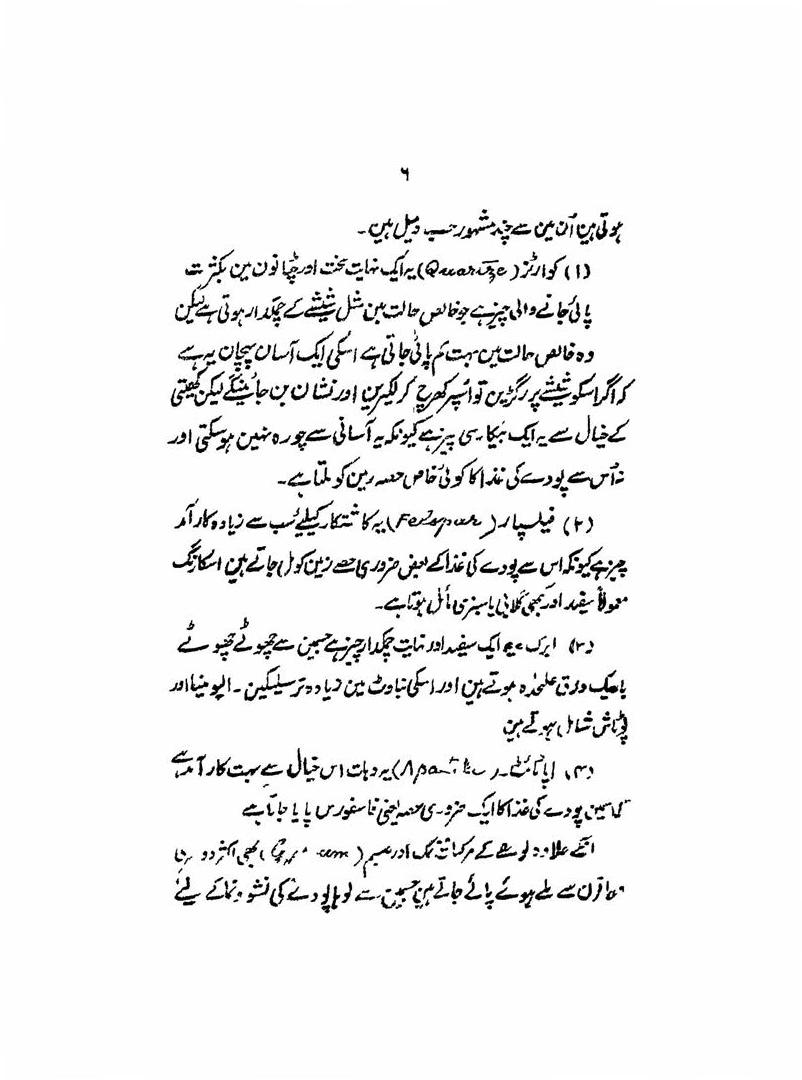 ۶
ہوتی ہین اُن مین سے چند مشہور حسب ذیل ہین۔
(۱) کوارٹز (Quartze) یہ ایک نہایت سخت اور چٹانون مین بکثرت
پائی جانے والی چیز ہے جو خالص حالت مین مثل شیشے کے چمکدار ہوتی ہے لیکن
وہ خالص حالت مین بہت کم پائی جاتی ہے اسکی ایک آسان پہچان یہ ہے
کہ اگر اسکو شیشے پر رگڑین تو اُسپر کھرچ کر لکیرین اور نشان بن جائینگے لیکن کھیتی
کے خیال سے یہ ایک بیکار سی چیز ہے کیونکہ یہ آسانی سے چورہ نہین ہوسکتی اور
نہ اُس سے پودے کی غذا کا کوئی خاص حصہ زمین کو ملتا ہے۔
(۲) فیلسپار (Felspar) یہ کاشتکار کیلیے سب سے زیادہ کار آمد
چیز ہے کیونکہ اس سے پودے کی غذا کے بعض ضروری حصے زمین کو مل جاتے ہین اسکا رنگ
معمولاً سفید اور کبھی گلابی یا سبزی مائل ہوتا ہے۔
(۳) ابرک یہ ایک سفید اور نہایت چمکدار چیز ہے جسمین سے چھوٹے چھوٹے
باریک ورق علیحدہ ہوتے ہین اور اسکی بناوٹ مین زیادہ تر سیلیکین۔ الیومینا اور
پوٹاش شامل ہوتے ہین
(۴) اپاٹائٹ۔ (Apatite) یہ دہات اس خیال سے بہت کار آمد ہے
کہ اسمین پودے کی غذا کا ایک ضروری حصہ یعنی فاسفورس پایا جاتا ہے
انکے علاوہ لوہے کے مرکبات نمک اور جپسیم (Gypsum) بھی اکثر دوسری
دہاتون سے ملے ہوئے پائے جاتے ہین جسمین سے لوہا پودے کی نشو ونما کے لیے